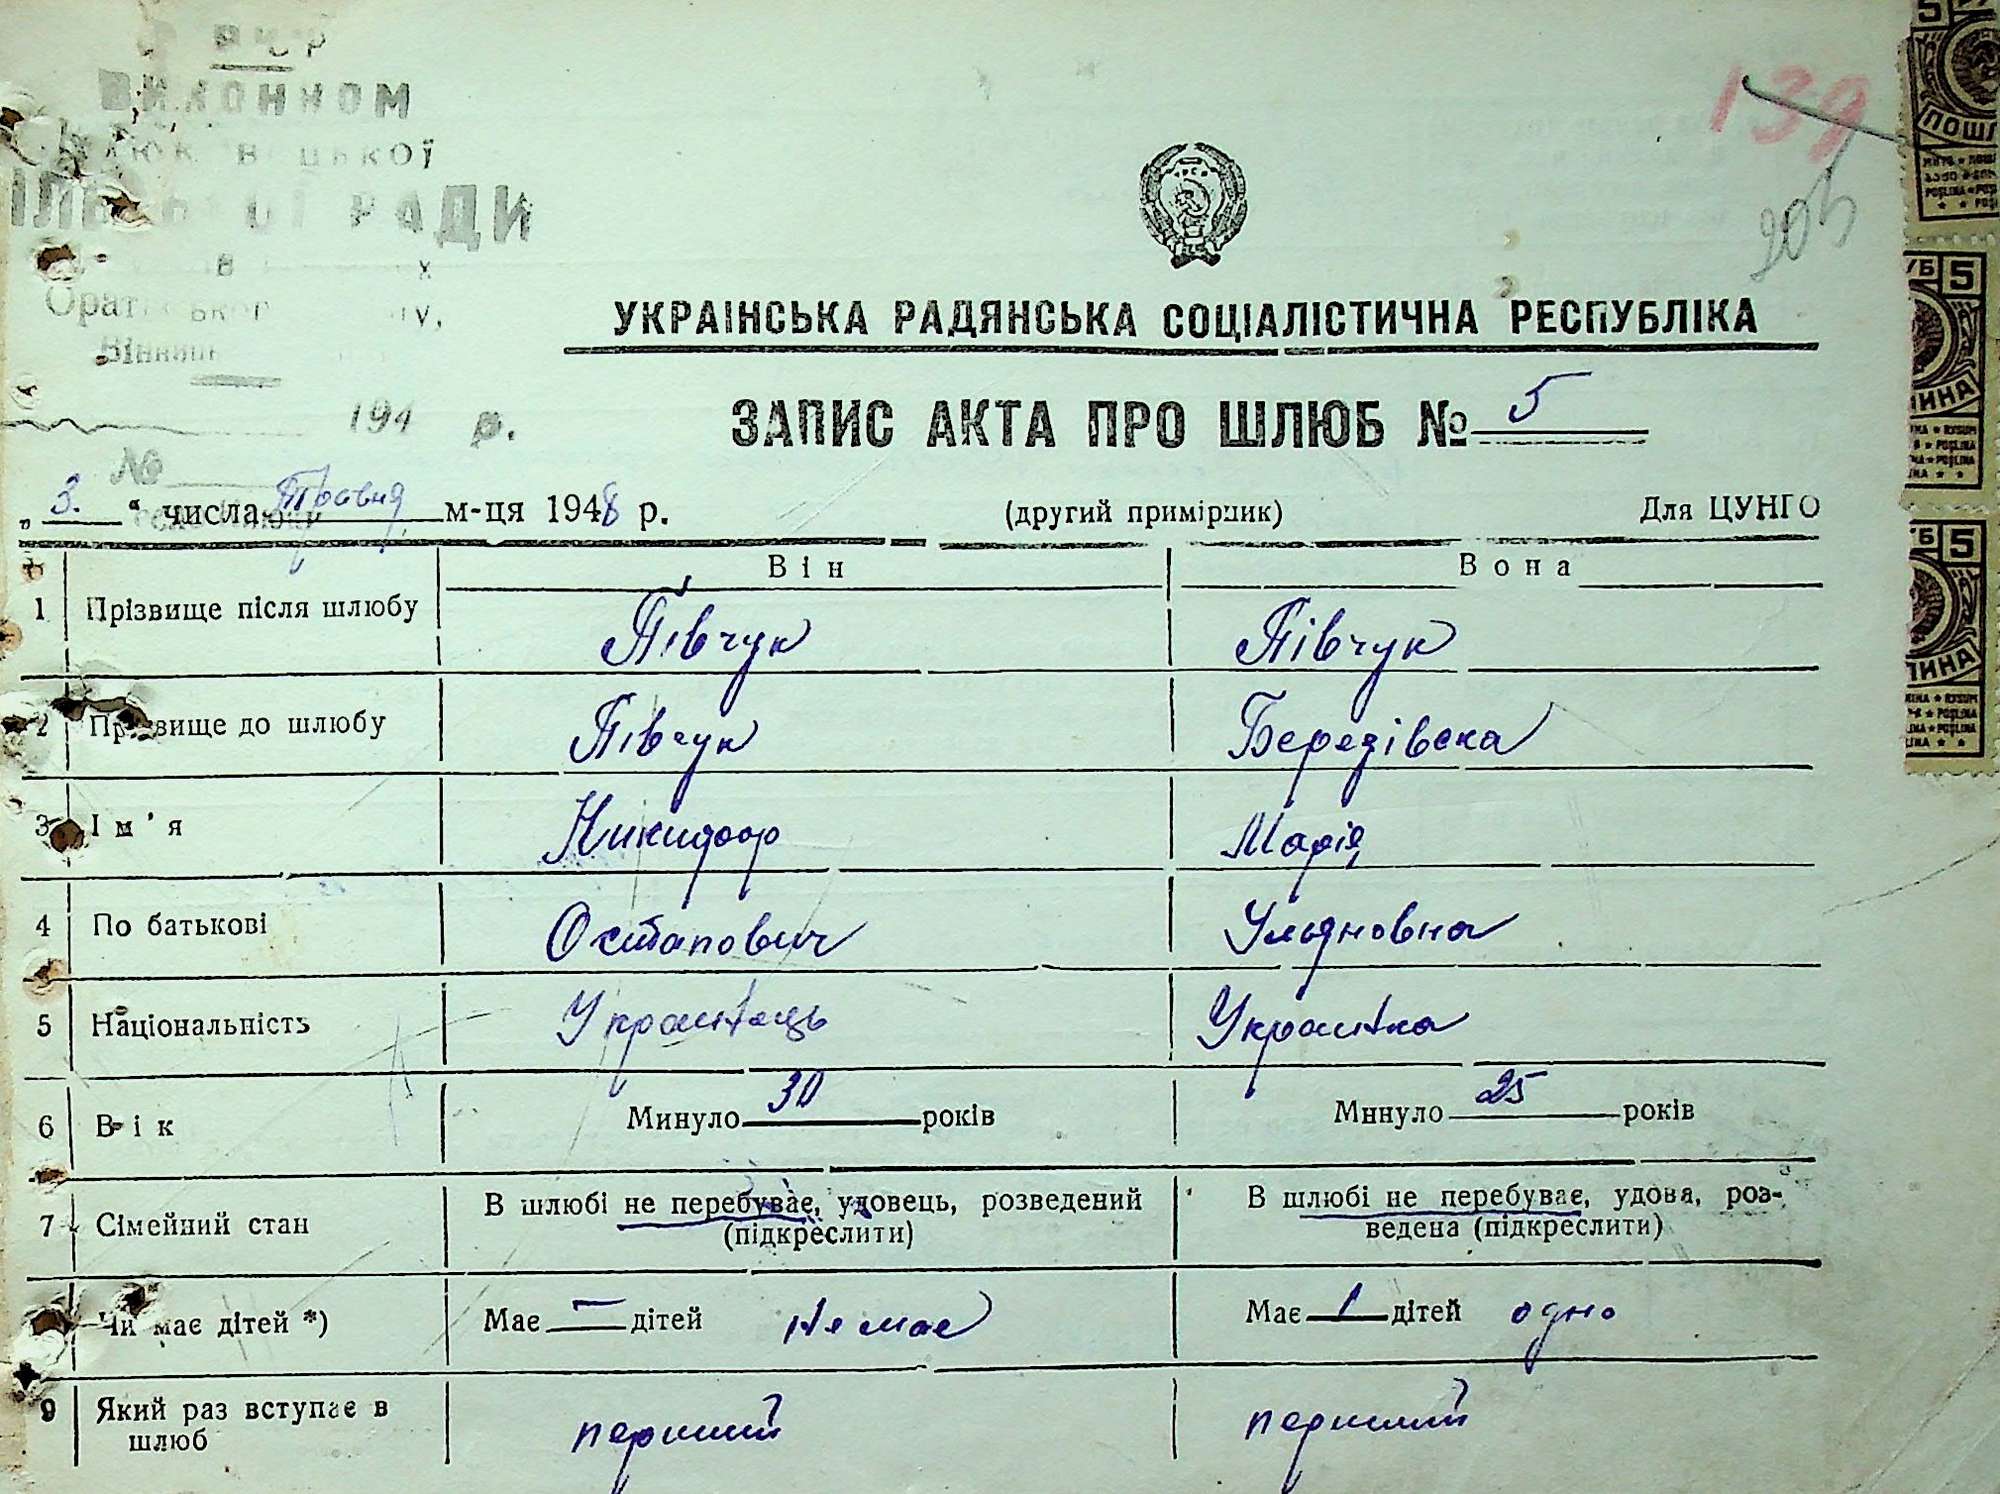 ВИКОНКОМ
РАДИ
194 р.
№
139
205
УКРАЇНСЬКА РАДЯНСЬКА СОЦІАЛІСТИЧНА РЕСПУБЛІКА
ЗАПИС АКТА ПРО ШЛЮБ № 5
„ 3. “ числа Травня м-ця 1948 р. (другий примірник) Для ЦУНГО
Він Вона
1 Прізвище після шлюбу Півчук Півчук
2 Прізвище до шлюбу Півчук Середівська
3 Ім'я Никифор Марія
4 По батькові Остапович Ульяновна
5 Національність Українець Українка
6 Вік Минуло 30 років Минуло 25 років
7 Сімейний стан В шлюбі не перебуває, удовець, розведений В шлюбі не перебуває, удова, роз-
(підкреслити) ведена (підкреслити)
Чи має дітей *) Має — дітей Не має Має 1 дітей одно
9 Який раз вступає в шлюб перший перший
УБ 5
ПОШЛИНА